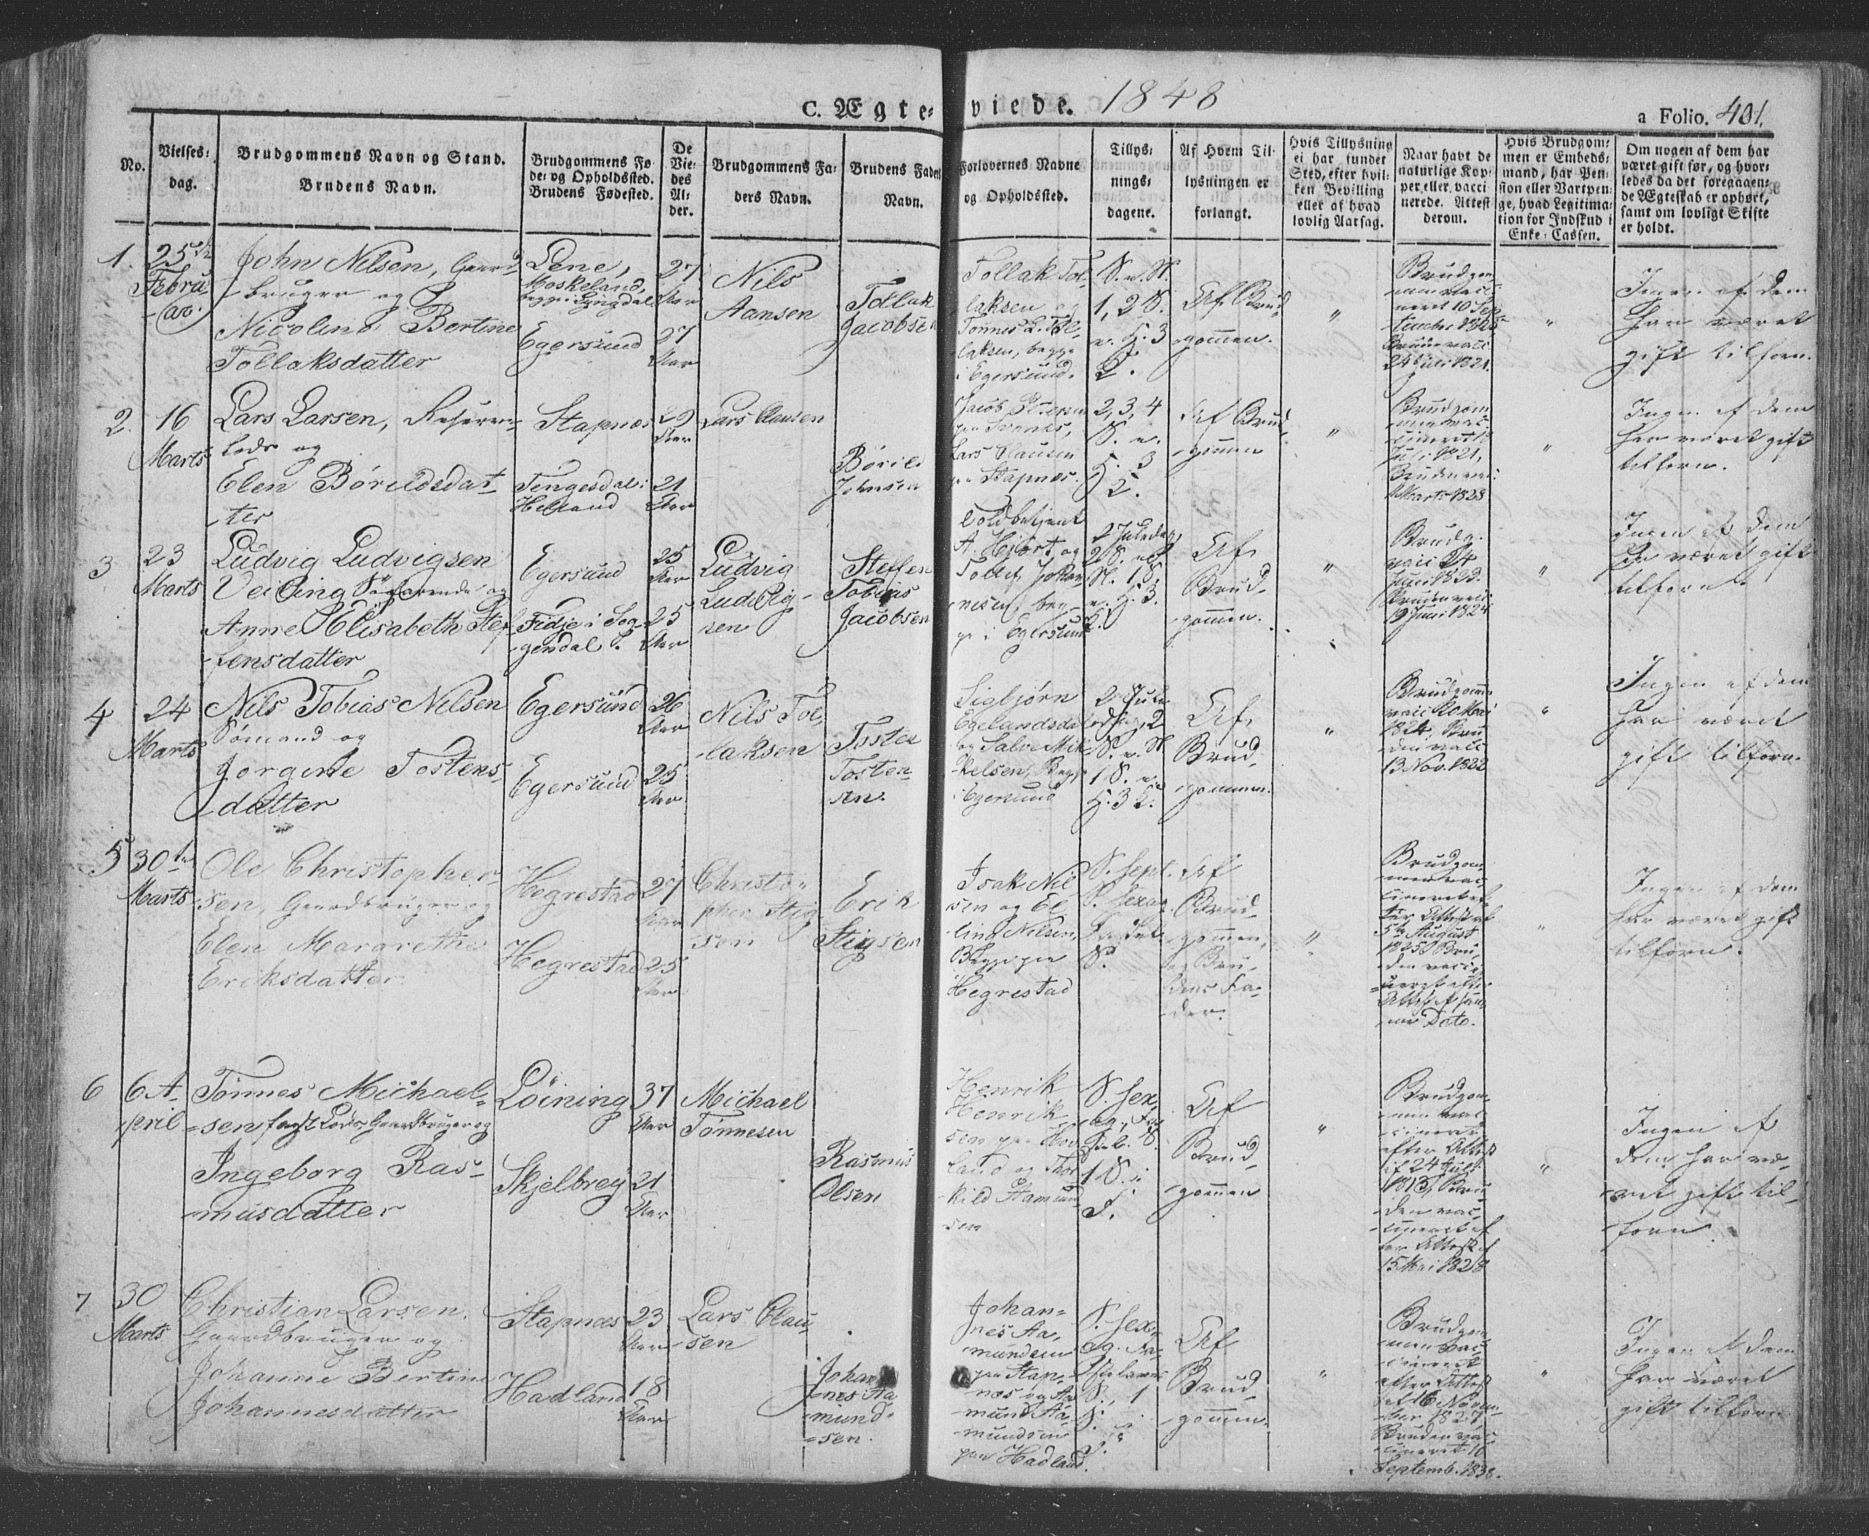 C. Ægte- viede. 1848
a Folio. 401.
No.
Vielses-
dag.
Brudgommens Navn og Stand.
Brudens Navn.
Brudgommens Fø-
de- og Opholdssted.
Brudens Fødested.
De
Vie-
des
Al-
der.
Brudgommens Fa-
ders Navn.
Brudens Faders
Navn.
Forlovernes Navne
og Opholdssted.
Tillys-
nings-
dagene.
Af Hvem Til-
lysningen er
forlangt.
Hvis Tillysning
ei har fundet
Sted, efter hvil-
ken Bevilling
eller af hvad
lovlig Aarsag.
Naar havt de
naturlige Kop-
per eller vacci-
nerede. Attest
derom.
Hvis Brudgom-
men er Embeds-
mand, har Pen-
sion eller Vartpen-
ge, hvad Legitima-
tion for Indskud i
Enke-Cassen.
Om nogen af dem har
været gift før, og hvor-
ledes da det foregaaen-
de Ægteskab er ophørt,
samt om lovligt Skifte
er holdt.
1.
25de
Febru-
ar.
John Nilsen, Gaard-
bruger og
Nicoline Bertine
Tollaksdatter
Lene,
Moskeland,
Egersund
27
Aar
27
Aar
Nils
Aansen
Tollak
Jacobsen
Tollak Tol-
laksen og
Tønnes L. Tol-
laksen, begge
i Egersund.
S. v. N.
1, 2 S.
e. H. 3
K.
Af Brud-
gommen.
"
Brudgom-
men vacci-
neret 10 Sep-
tember 1825
Bruden vacc
24 Juli 1821.
"
Ingen af dem
har været
gift tilforn.
2.
16
Marts
Lars Larsen,
og
Elen Børildsdat-
ter
Stapnæs
Tengesdal i
Helland
29
Aar
21
Aar
Lars Clausen
Børild
Johnsen
Jacob
paa Svanes,
Lars Clausen
paa Stapnæs.
2, 3, 4
S. e.
H. 3
K.
Af Brud-
gommen
"
Brudgom-
men vac-
cineret 13
Juli 1821,
Bruden vac:
Marts 1828
"
Ingen af dem
har været gift
tilforn.
3
23
Marts
Ludvig Ludvigsen
Veiding Søfarende og
Anne Elisabeth Stef-
fensdatter
Egersund
Fidje i Sog-
gendal P.
25
Aar
25
Aar
Ludvig
Ludvig-
sen
Steffen
Tobias
Jacobsen
Toldbetjent
A. Hjort og
Tollef Johan-
nesen, beg-
ge i Egersund
2 Juledag,
2 S.
N. 1 S.
e. H. 3.
K.
Af
Brud-
gommen.
"
Brudg.
vacc 24
Juni 1823.
Bruden vacc
19 Juni 1824
"
Ingen af dem
har været gift
tilforn.
4
24
Marts
Nils Tobias Nilsen
Sømand og
Jorgine Tostens-
datter
Egersund
Egersund
26
Aar
25
Aar
Nils Tol-
laksen
Tosten
Tosten-
sen.
Sigbjørn
Egelandsdal
og Salve Mik-
kelsen, Begge
i Egersund
2 Jule-
dag, 2
S. v. N.
1 S. e.
H. 3 K.
Af
Brud-
gommen.
"
Brudgomm
vacc 20 Mai
1824, Bru-
den vacc
13 Nov. 1822
"
Ingen af dem
har været
gift tilforn.
5
30te
Marts
Ole Christopher-
sen, Gaardbruger og
Elen Margrethe
Eriksdatter
Hegrestad
Hegrestad
27
Aar
25
Aar
Christo-
pher Stig-
sen
Erik
Stigsen
Isak Nil-
sen og El-
ling Nilsen,
Begge paa
Hegrestad
S. Sept.
S. Sexag.
Fastel.
S.
Af
Brud-
gommen,
og Bru-
dens Fa-
der.
"
Brudgom-
men vac-
cineret ef-
ter Attest af
5te August
1825, Bru-
den vacci-
neret efter
Attest af sam-
me Dato.
"
Ingen af dem
har været gift
tilforn.
6
6 A-
pril
Tønnes Michael-
sen, fast Lods, Gaardbruger og
Ingeborg Ras-
musdatter
Løining
Skjelbrey
37
Aar
21
Aar
Michael
Tønnesen
Rasmus
Olsen
Henrik
Henrik-
sen paa Hov-
land og Thor-
kild
sen
S. Sex-
ag., Fa-
stel. S.
1 S. i
F.
Af
Brud-
gommen
"
Brudgom-
men vac-
cineret
efter Attest
af 24 Juli
1813, Bru-
den vac-
cineret ef-
ter Attest af
15 Mai 1828
"
Ingen af
dem har væ-
ret gift til-
forn.
7
30
Marts
Christian Larsen.
Gaardbruger og
Johanne Bertine
Johannesdatter
Stapnæs
Hadland
23
Aar
18
Aar
Lars Clau-
sen
Johan-
nes Aa-
mund-
sen.
Johan-
nes Aa-
mundsen
paa Stap-
næs og Aa-
mund Aa-
mundsen
paa Hadland.
S. Sex-
ag. Fa-
stelavns
S., 1
S. i
F.
Af
Brud-
gommen.
"
Brudgom-
men vac-
cineret
efter Attest
af 16 Novem-
ber 1827
Bruden vac-
cineret 10
Septemb. 1838.
"
Ingen af dem
har været
gift tilforn.